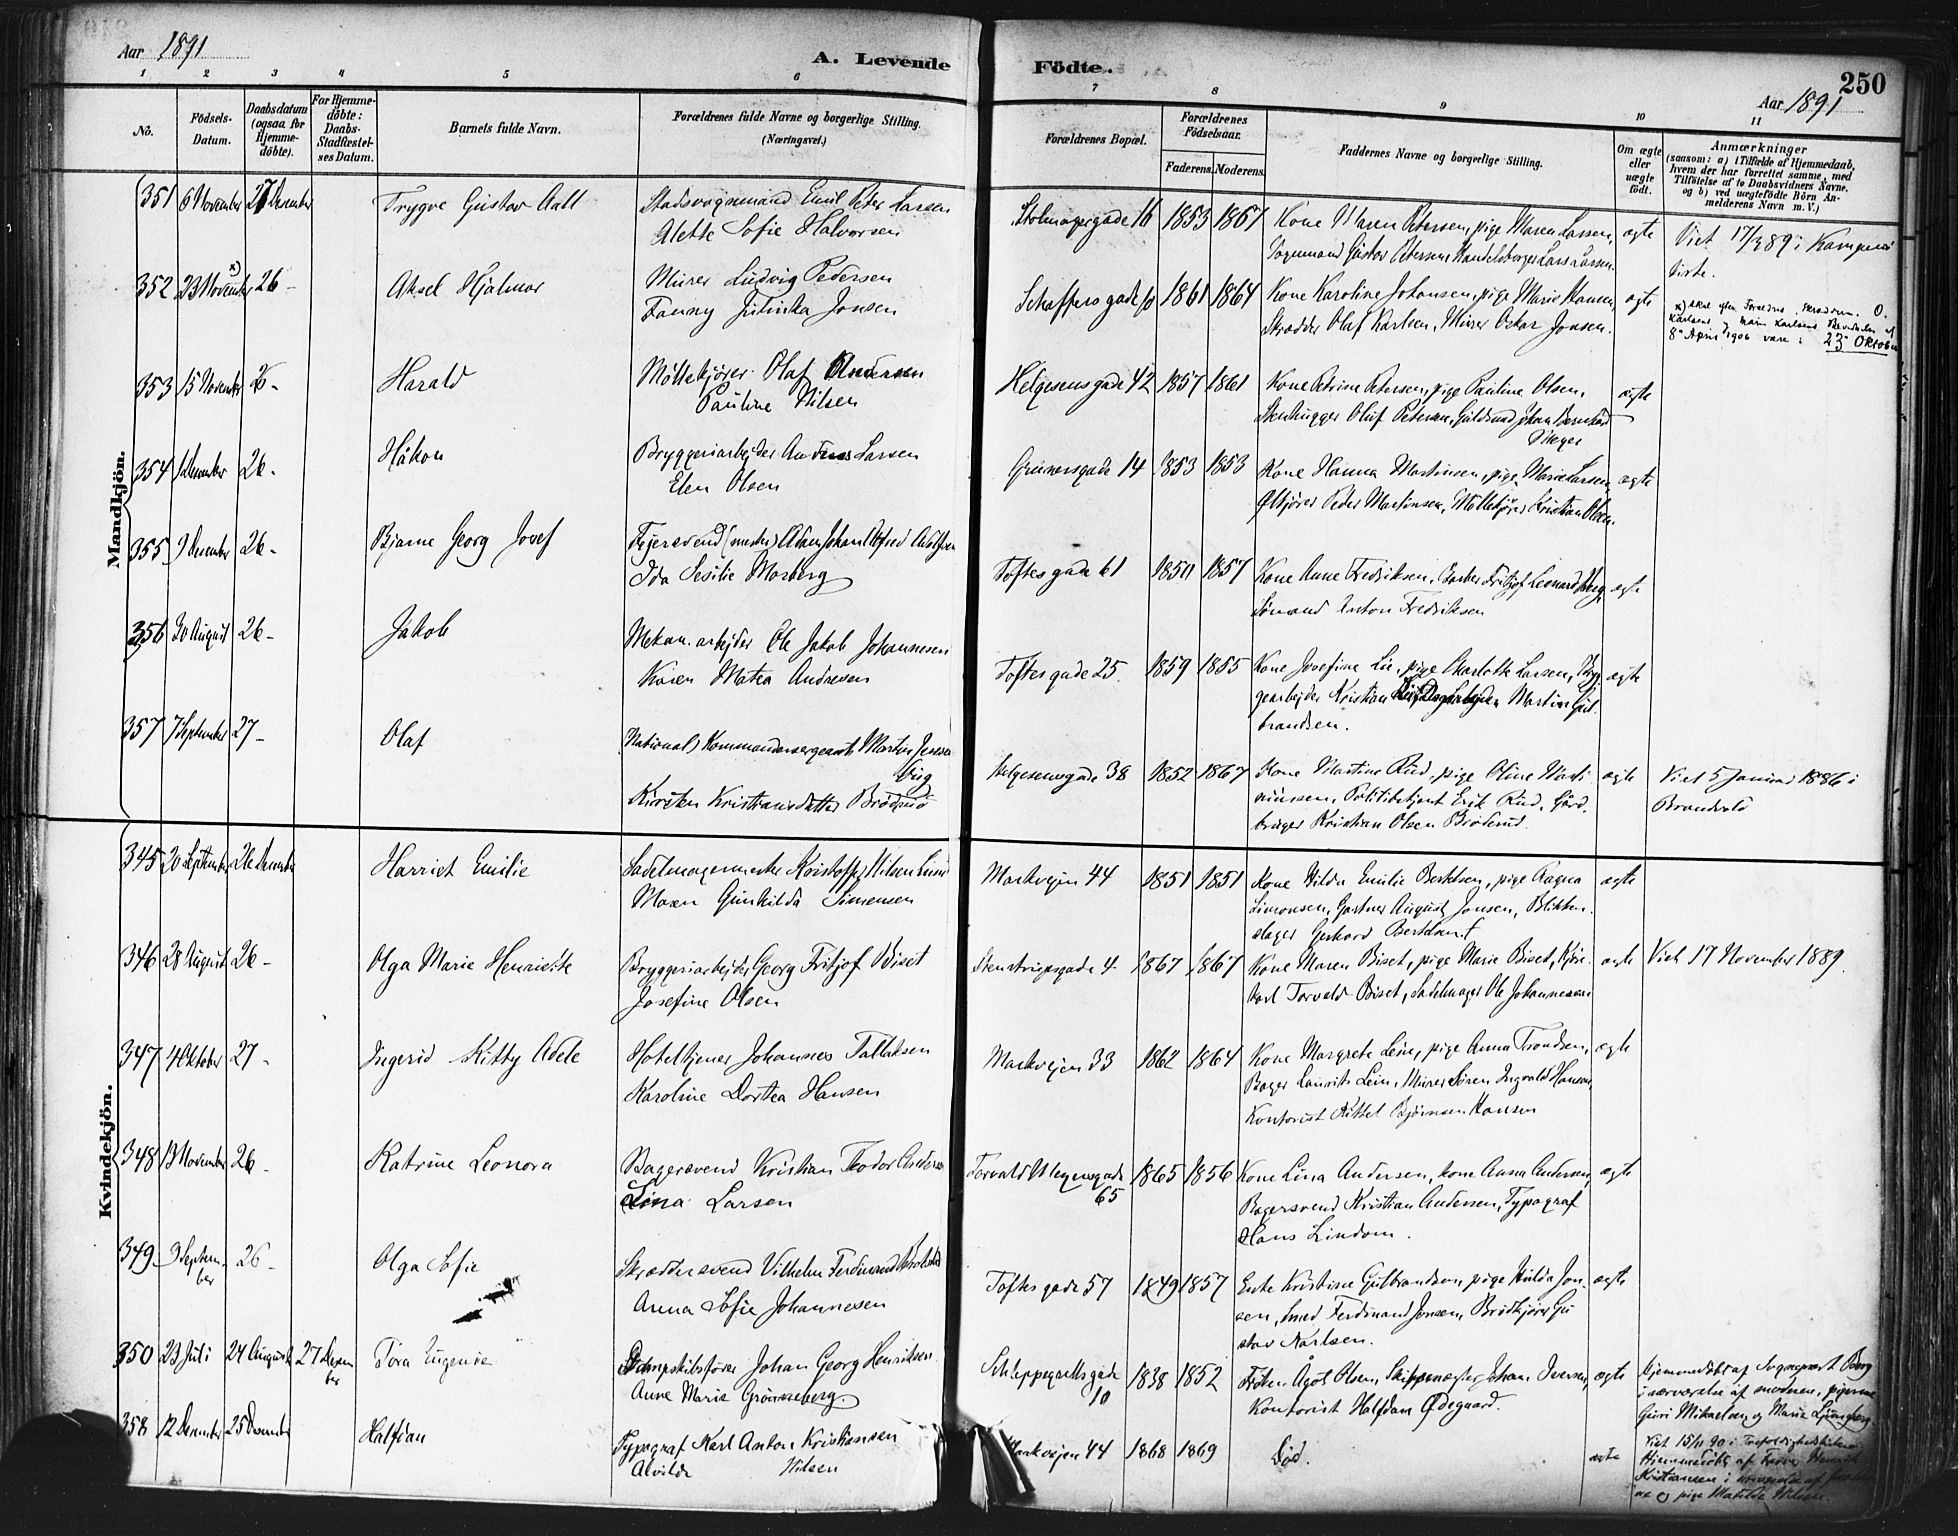 Aar 1891
A. Levende
Fødte.
250
Aar 1891
1 2 3 4 5 6 7 8 9 10 11
No.
Födsels-Datum.
Daabsdatum (ogsaa for Hjemme-döbte).
For Hjemme-döbte: Daabs-Stadfæstel-ses Datum.
Barnets fulde Navn.
Forældrenes fulde Navne og borgerlige Stilling. (Næringsvei.)
Forældrenes Bopæl.
Forældrenes Födselsaar.
Faderens. Moderens.
Faddernes Navne og borgerlige Stilling.
Om ægte eller uægte födt.
Anmærkninger
(saasom: a) i Tilfælde af Hjemmedaab, hvem der har forrettet samme, med Tilföielse af to Daabsvidners Navne. og b) ved uægtefödte Börn An-melderens Navn m. V.)
Mandkjön.
351 6 November 27 Desember Trygve Gustav Aall
Stadsvognmand Emil Peter Larsen
Alette Sofie Halvorsen
Stolmagergade 16 1853 1867
Kone Maren Petersen, pige Maren Larsen,
Vognmand Gustav Petersen Handelsborger Lars Larsen.
ægte
Viet 17/3 89 i Kampens
Kirke.
352 23 November x) 26 - Aksel Hjalmar
Murer Ludvig Pedersen
Fanny Jensen
Schæffersgade 1861 1864
Kone Karoline Johansen, pige Marie Hansen,
Skrædder Olaf Karlsen, Murer Oskar Jonsen.
ægte
8de April 1906 være: 23 Oktober
353 15 November 26 - Harald
Møllekjører Olaf Andersen
Pauline Nilsen
Helgesensgade 42 1857 1861
Kone Petrine Petersen, pige Pauline Olsen,
Stenhugger Oluf Petersen, Guldsmed Johan Bernhard
Meyer
ægte
354 1 Desember 26 - Håkon
Bryggeriarbejder Anders Larsen
Elen Olsen
Grünersgade 14 1853 1853
Kone Hanna Martinsen, pige Marie Larsen,
Ølkjører Peder Martinsen, Møllekjører Kristian Olsen.
ægte
355 9 Desember 26 - Bjarne Georg Josef
Fejersvend (mester) Adam Johan Alfred Adolfsen
Ida Sesilie Morberg
Toftesgade 61 1850 1857
Kone Anne Fredriksen, Barber Fritjof Leonard Berg,
Sømand Anton Fredriksen
ægte
356 30 August 26 - Jakob
Mekan. arbejder Ole Jakob Johannesen
Karen Matea Andresen
Toftesgade 25 1859 1855
Kone Josefine Lie, pige Charlotte Larsen, Bryg-
gearbejder Kristian Lie, Martin Gul-
brandsen.
ægte
357 7 September 27 - Olaf
National) Kommandersergeant Martin Jensen
Kirsten Kristiansdatter Brøderud
Helgesensgade 38 1852 1867
Kone Martine Rud, pige Oline Marti-
niussen, Politibetjent Erik Rud, Gård-
bruger Kristian Olsen Brøderud.
ægte
Viet 5 Januar 1886 i
Brandvold
Kvindekjön.
345 20 September 26 Desember Harriet Emilie
Sadelmagermester Kristoffer Nilsen Lund
Maren Gunhilda Simensen
Markvejen 44 1851 1851
Kone Hilda Emilie Bertelsen, pige Ragna
Simonsen, Gartner August Jonsen, Blikken-
slager Gerhard Bertelsen.
ægte
346 28 August 26 - Olga Marie Henriette
Bryggeriarbejder Georg Fritjof Biset
Josefine Olsen
Stenstrupsgade 4 1867 1867
Kone Maren Biset, pige Marie Biset, Kjøre-
karl Torvald Biset, Sadelmager Ole Johannesen
ægte
Viet 17 November 1889.
347 4 Oktober 27 - Ingerid Kitty Adele
Hoteltjener Johannes Tallaksen
Karoline Dortea Hansen
Markvejen 33 1862 1864
Kone Margrete Lein, pige Anna Trondsen,
Bager Laurits Lein, Murer Søren Ingvald Hansen,
Kontorist Kittel Bjørnsen Hansen
ægte
348 13 November 26 - Katrine Leonora
Bagersvend Kristian Teodor Andersen
Lina Larsen
Torvald Meyersgade
65 1865 1856
Kone Lina Andersen, kone Anna Andersen,
Bagersvend Kristian Andersen, Typograf
Hans Lindom.
ægte
349 3 Septem-
ber 26 - Olga Sofie
Skræddersvend Vilhelm Ferdinand
Anna Sofie Johannesen
Toftesgade 57 1849 1857
Enke Kristine Gulbrandsen, pige Hulda Jon-
sen, Smed Ferdinand Jonsen, Brødkjører Gu-
stav Karlsen.
ægte
350 23 Juli 24 August 27 Desem-
ber Tora Eugenie
Dampskibsfører Johan Georg Henriksen
Anne Marie Grønneberg.
Schleppegrellsgade
10 1838 1852
Frøken Ågot Olsen, Johan Iversen,
Kontorist Halfdan Ødegaard.
ægte
Hjemmedøbt af Sogneprest Berg
i nærværelse af moderen, pigerne
Guri Mikaelsen og Marie Ljungberg.
358 12 Desember 25 Desember Halfdan
Typograf Karl Anton Kristiansen
Alvilde Nilsen
Markvejen 44 1868 1869
Død.
ægte
Viet 15/11 90 i Trefoldighedskirken
Hjemmedøbt af Henrik
Kristiansen i nærværelse af
og pige Matilde Nilsen.